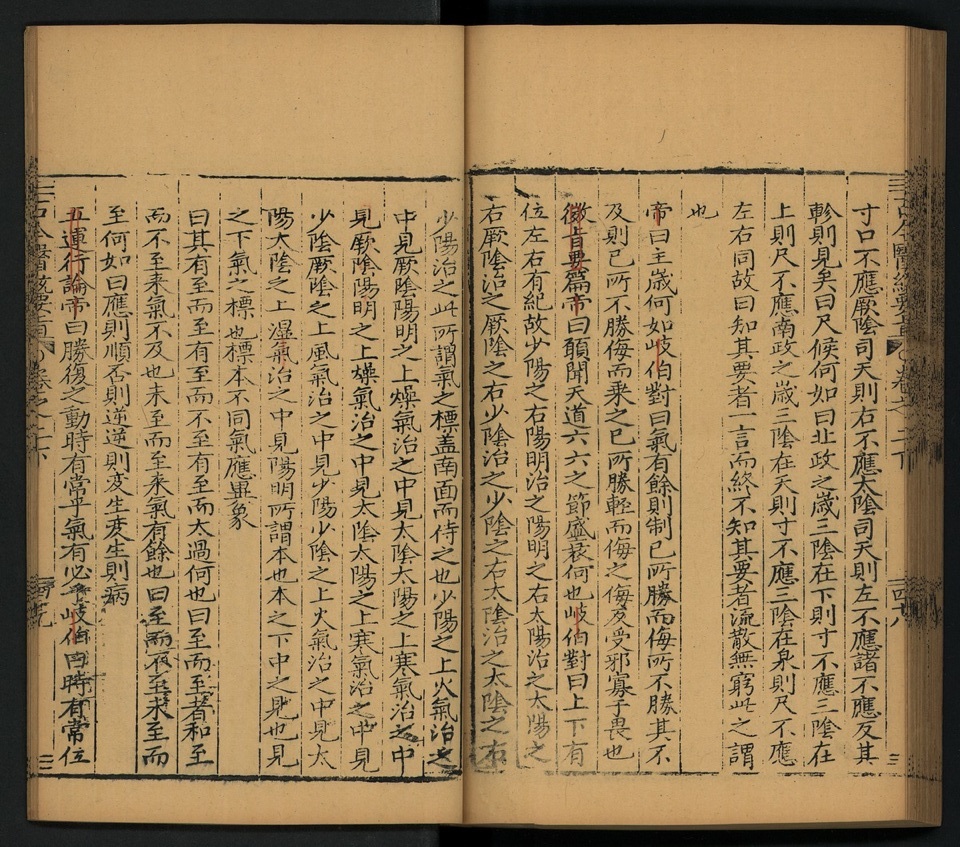 寸口不應厥陰司天則右不應太陰司天則左不應諸不應反其
軫則見矣曰尺候何如曰北政之歲三陰在下則寸不應三陰在
上則尺不應南政之歲三陰在天則寸不應三陰在泉則尺不應
左右同故曰知其要者一言而終不知其要者流散無窮此之謂
也
帝曰主歲何如岐伯對曰氣有餘則制已所勝而侮所不勝其不
及則已所不勝侮而乗之已所勝輕而侮之侮反受邪寡于畏也
微旨要篇帝曰願聞天道六六之節盛衰何也岐伯對曰上下有
位左右有紀故少陽之右陽明治之陽明之右太陽治之太陽之
右厥陰治之厥陰之右少陰治之少陰之右太陰治之太陰之右
少陽治之此所謂氣之標盖南面而待之也少陽之上火氣治之
中見厥陰陽明之上燥氣治之中見太陰太陽之上寒氣治之中
見厥陰陽明之上燥氣治之中見太陰太陽之上寒氣治之中見
少陰厥陰之上風氣治之中見少陽少陰之上火氣治之中見太
陽太陰之上濕氣治之中見陽明所謂本也本之下中之見也見
之下氣之標也標本不同氣應異象
曰其有至而有至而不至有至而太過何也曰至而至者和至
而不至来氣不及也未至而至来氣有餘也曰至而不至未至而
至何如曰應則順否則逆逆則变生变生則病
五運行論帝曰勝復之動時有常乎氣有必乎岐伯曰時有常位
卷之二下
四十九